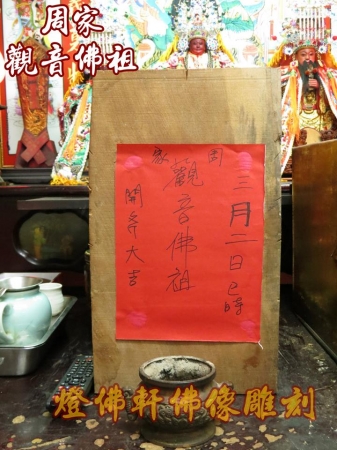 周家
觀音佛祖
三月二日巳時
周家
觀音佛祖
開斧大吉
燈佛軒佛像雕刻